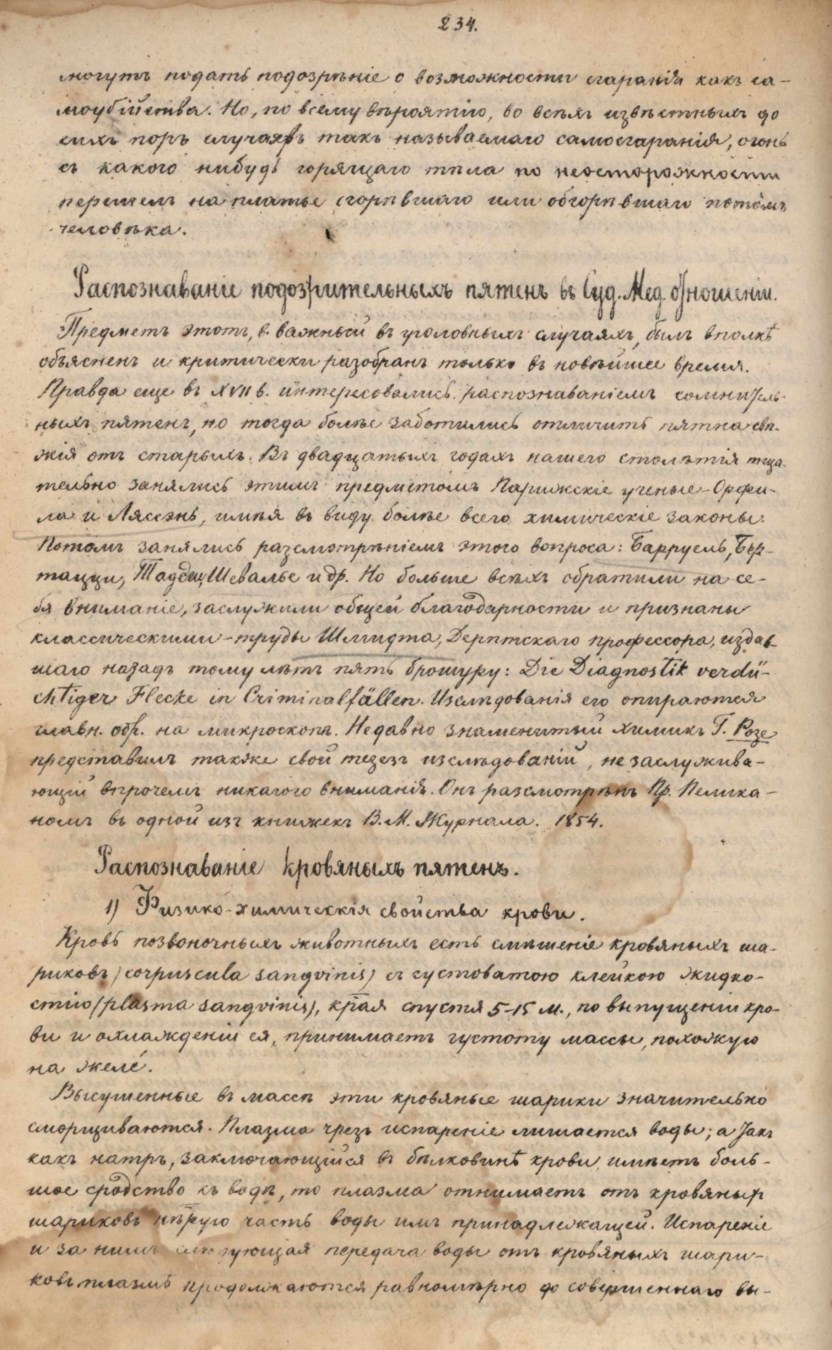 234.
могутъ подать подозрѣніе о возможности сгаранія какъ са-
моубійства. Но, по всему вѣроятію, во всѣхъ извѣстныхъ до
сихъ поръ случаяхъ такъ называемаго самосгаранія, огонь
съ какого нибудь горящаго тѣла по неосторожности
перешелъ на платье сгорѣвшаго или обгорѣвшаго потомъ
человѣка.
Распознаваніе подозрительныхъ пятенъ въ Суд. Мед. отношеніи.
Предметъ этотъ, в. важный въ уголовныхъ случаяхъ, былъ вполнѣ
объясненъ и критически разобранъ только въ новѣйшее время.
Правда еще въ XVII в. интересовались распознаваніемъ сомнитель-
ныхъ пятенъ, но тогда болѣе заботились отличить пятна свѣ-
жія отъ старыхъ. Въ двадцатыхъ годахъ нашего столѣтія тща-
тельно занялись этимъ предметомъ Парижскіе ученые Орфи-
ла и Лассэнь, имѣя въ виду болѣе всего химическіе законы.
Потомъ занялись разсмотрѣніемъ этого вопроса: Барруель, Бер-
тацци, Шевалье и др. Но больше всѣхъ обратили на се-
бя вниманіе, заслужили общей благодарности и признаны
классическими - труды Шмидта, Дерптскаго профессора, издав-
шаго назадъ тому лѣтъ пять брошуру: Die Diagnostik verdä-
chtiger Flecke in Criminalfällen. Изслѣдованія его опираются
главн. обр. на микроскопѣ. Недавно знаменитый химикъ Г. Розе
представилъ также свой тезезъ изслѣдованій, не заслужива-
ющій впрочемъ никакого вниманія. Онъ разсмотрѣнъ Пр. Пелика-
номъ въ одной изъ книжекъ В. М. Журнала. 1854.
Распознаваніе кровяныхъ пятенъ.
1) Физико-химическія свойства крови.
Кровь позвоночныхъ животныхъ есть смѣшеніе кровяныхъ ша-
риковъ (corpuscula sangvinis) съ густоватою клейкою жидко-
стію (plasma sangvinis), кр̅ая спустя 5-15 м., по выпущеніи кро-
ви и охлажденіи ея, принимаетъ густоту массы, похожую
на желе.
Высушенные въ массѣ эти кровяные шарики значительно
сморщиваются. Плазма чрезъ испареніе лишается воды; а такъ
какъ натръ, заключающійся въ бѣлковинѣ крови, имѣетъ боль-
шое сродство къ водѣ, то плазма отнимаетъ отъ кровяныхъ
шариковъ нѣ̅рую часть воды имъ принадлежащей. Испареніе
и за нимъ слѣдующая передача воды отъ кровяныхъ шари-
ковъ плазмѣ продолжаются равномѣрно до совершеннаго вы-